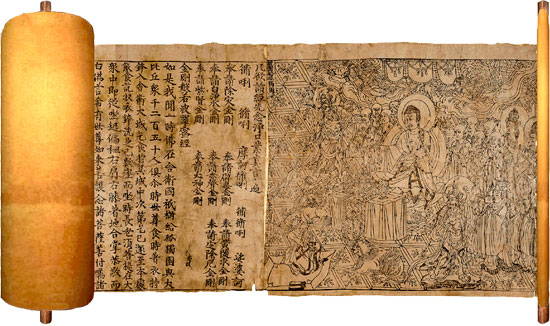 凡欲讀經先念淨口業真言遍
脩唎 脩唎 摩訶脩唎 脩脩唎 娑婆訶
奉請除灾金剛 奉請辟毒金剛 奉請黃隨求金剛
奉請白淨水金剛 奉請赤聲金剛 奉請定除灾金剛
奉請紫賢金剛 奉請大神金剛
金剛般若波羅蜜經
如是我聞一時佛在舍衛國祇樹給孤獨園與大
比丘眾千二百五十人俱尒時世尊食時著衣持
鉢入舍衛大城乞食於其城中次第乞已還至本處
飯食訖收衣鉢洗足已敷座而坐時長老須菩提在大
眾中即從座起偏袒右肩右膝著地合掌恭敬而
白佛言希有世尊如來善護念諸菩薩善付囑諸